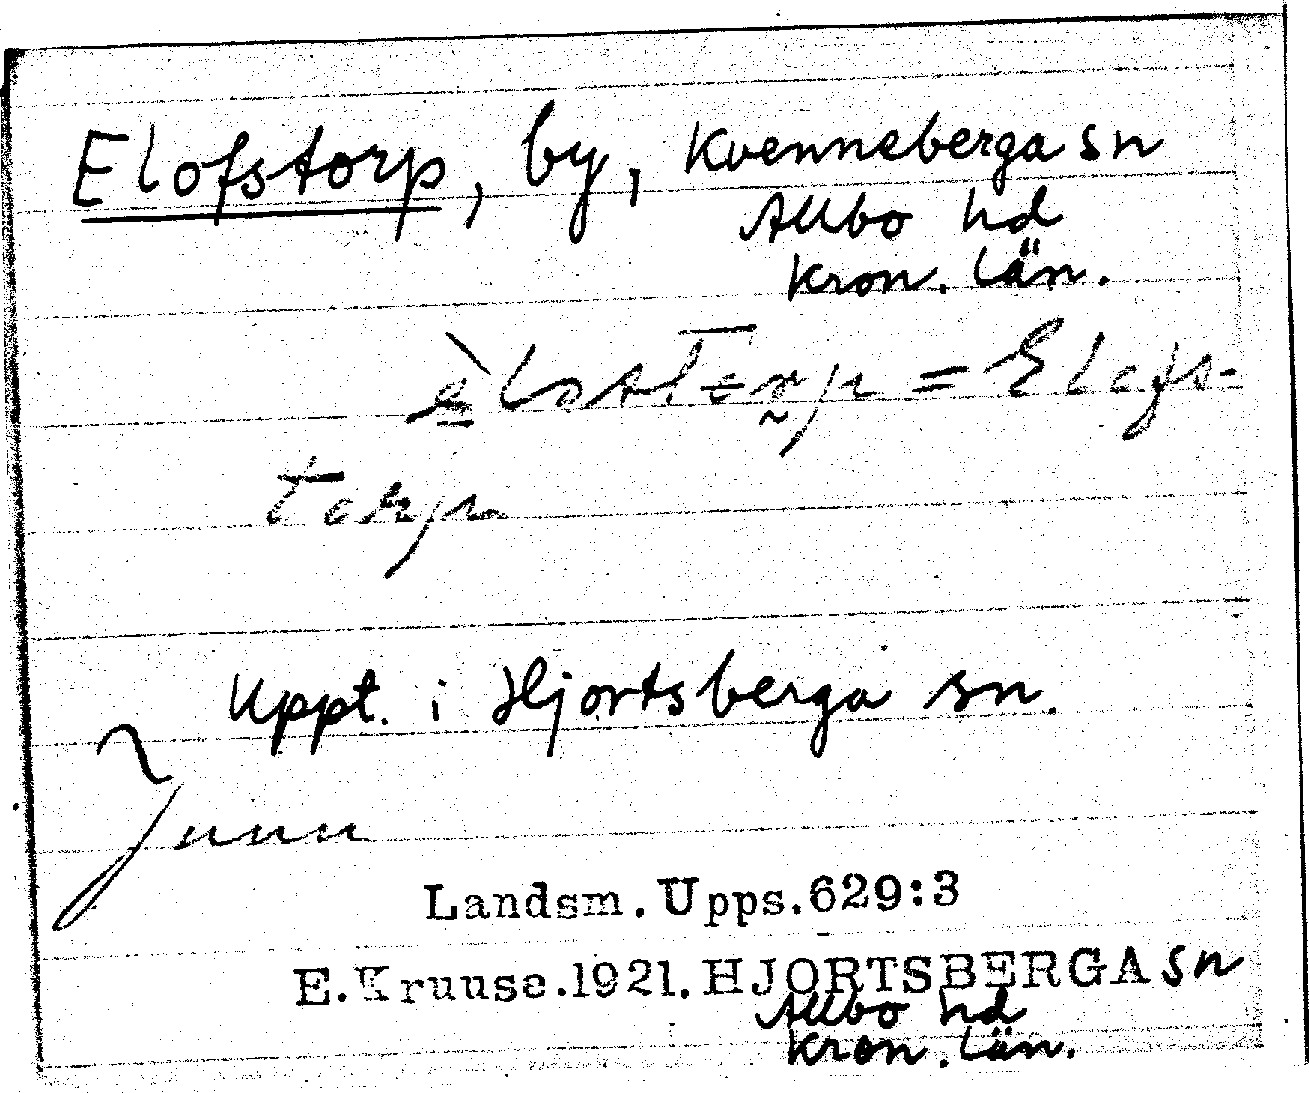 Elofstorp, by, Kvenneberga sn
Allbo hd
Kron. län.
= Elofs-
torp
Uppt. i Hjortsberga sn.
Landsm. Upps. 629:3
E. Kruuse. 1921. HJORTSBERGA sn
Allbo hd
Kron. län.